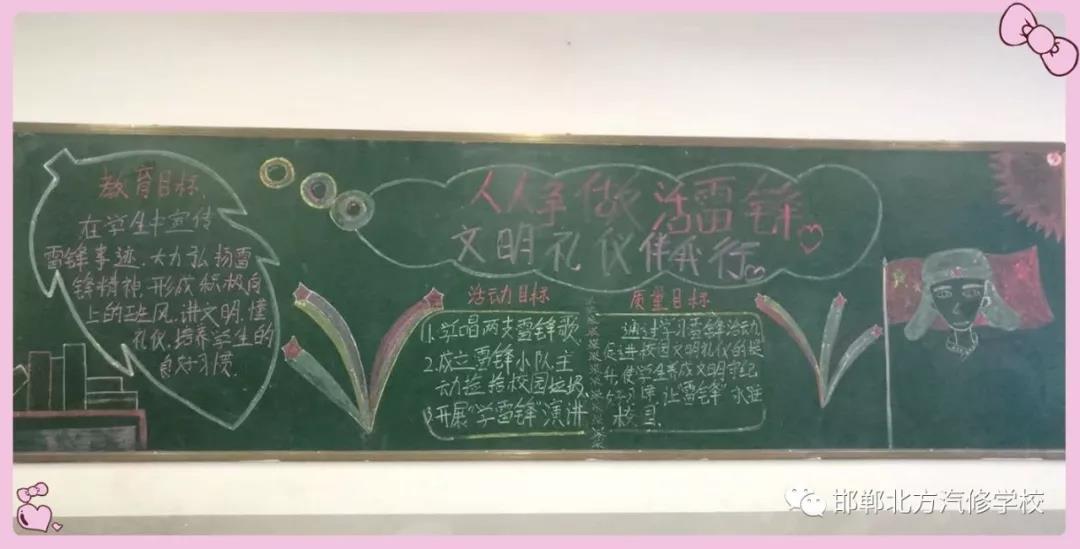 教育目标
在学生中宣传
雷锋事迹、大力弘扬雷
锋精神,形成积极向
上的班风,讲文明、懂
礼仪,培养学生的
良好习惯.
人人争做活雷锋
文明礼仪伴我行
活动目标
1.学唱两支雷锋歌
2.成立雷锋小队主
动捡拾校园垃圾
3.开展“学雷锋”演讲
质量目标
通过学习雷锋活动,
促进校园文明礼仪的提
升,使学生养成文明守纪
好习惯,让“雷锋”永驻
校园.
邯郸北方汽修学校